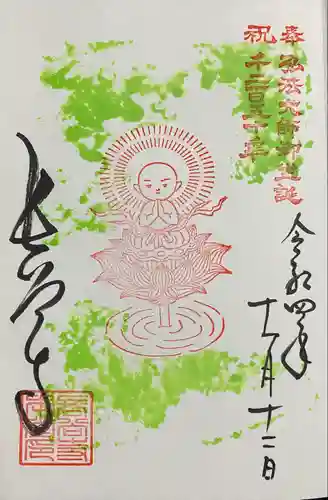 奉祝
弘法大師御生誕
千二百五十年
令和四年
十一月十二日
長谷寺